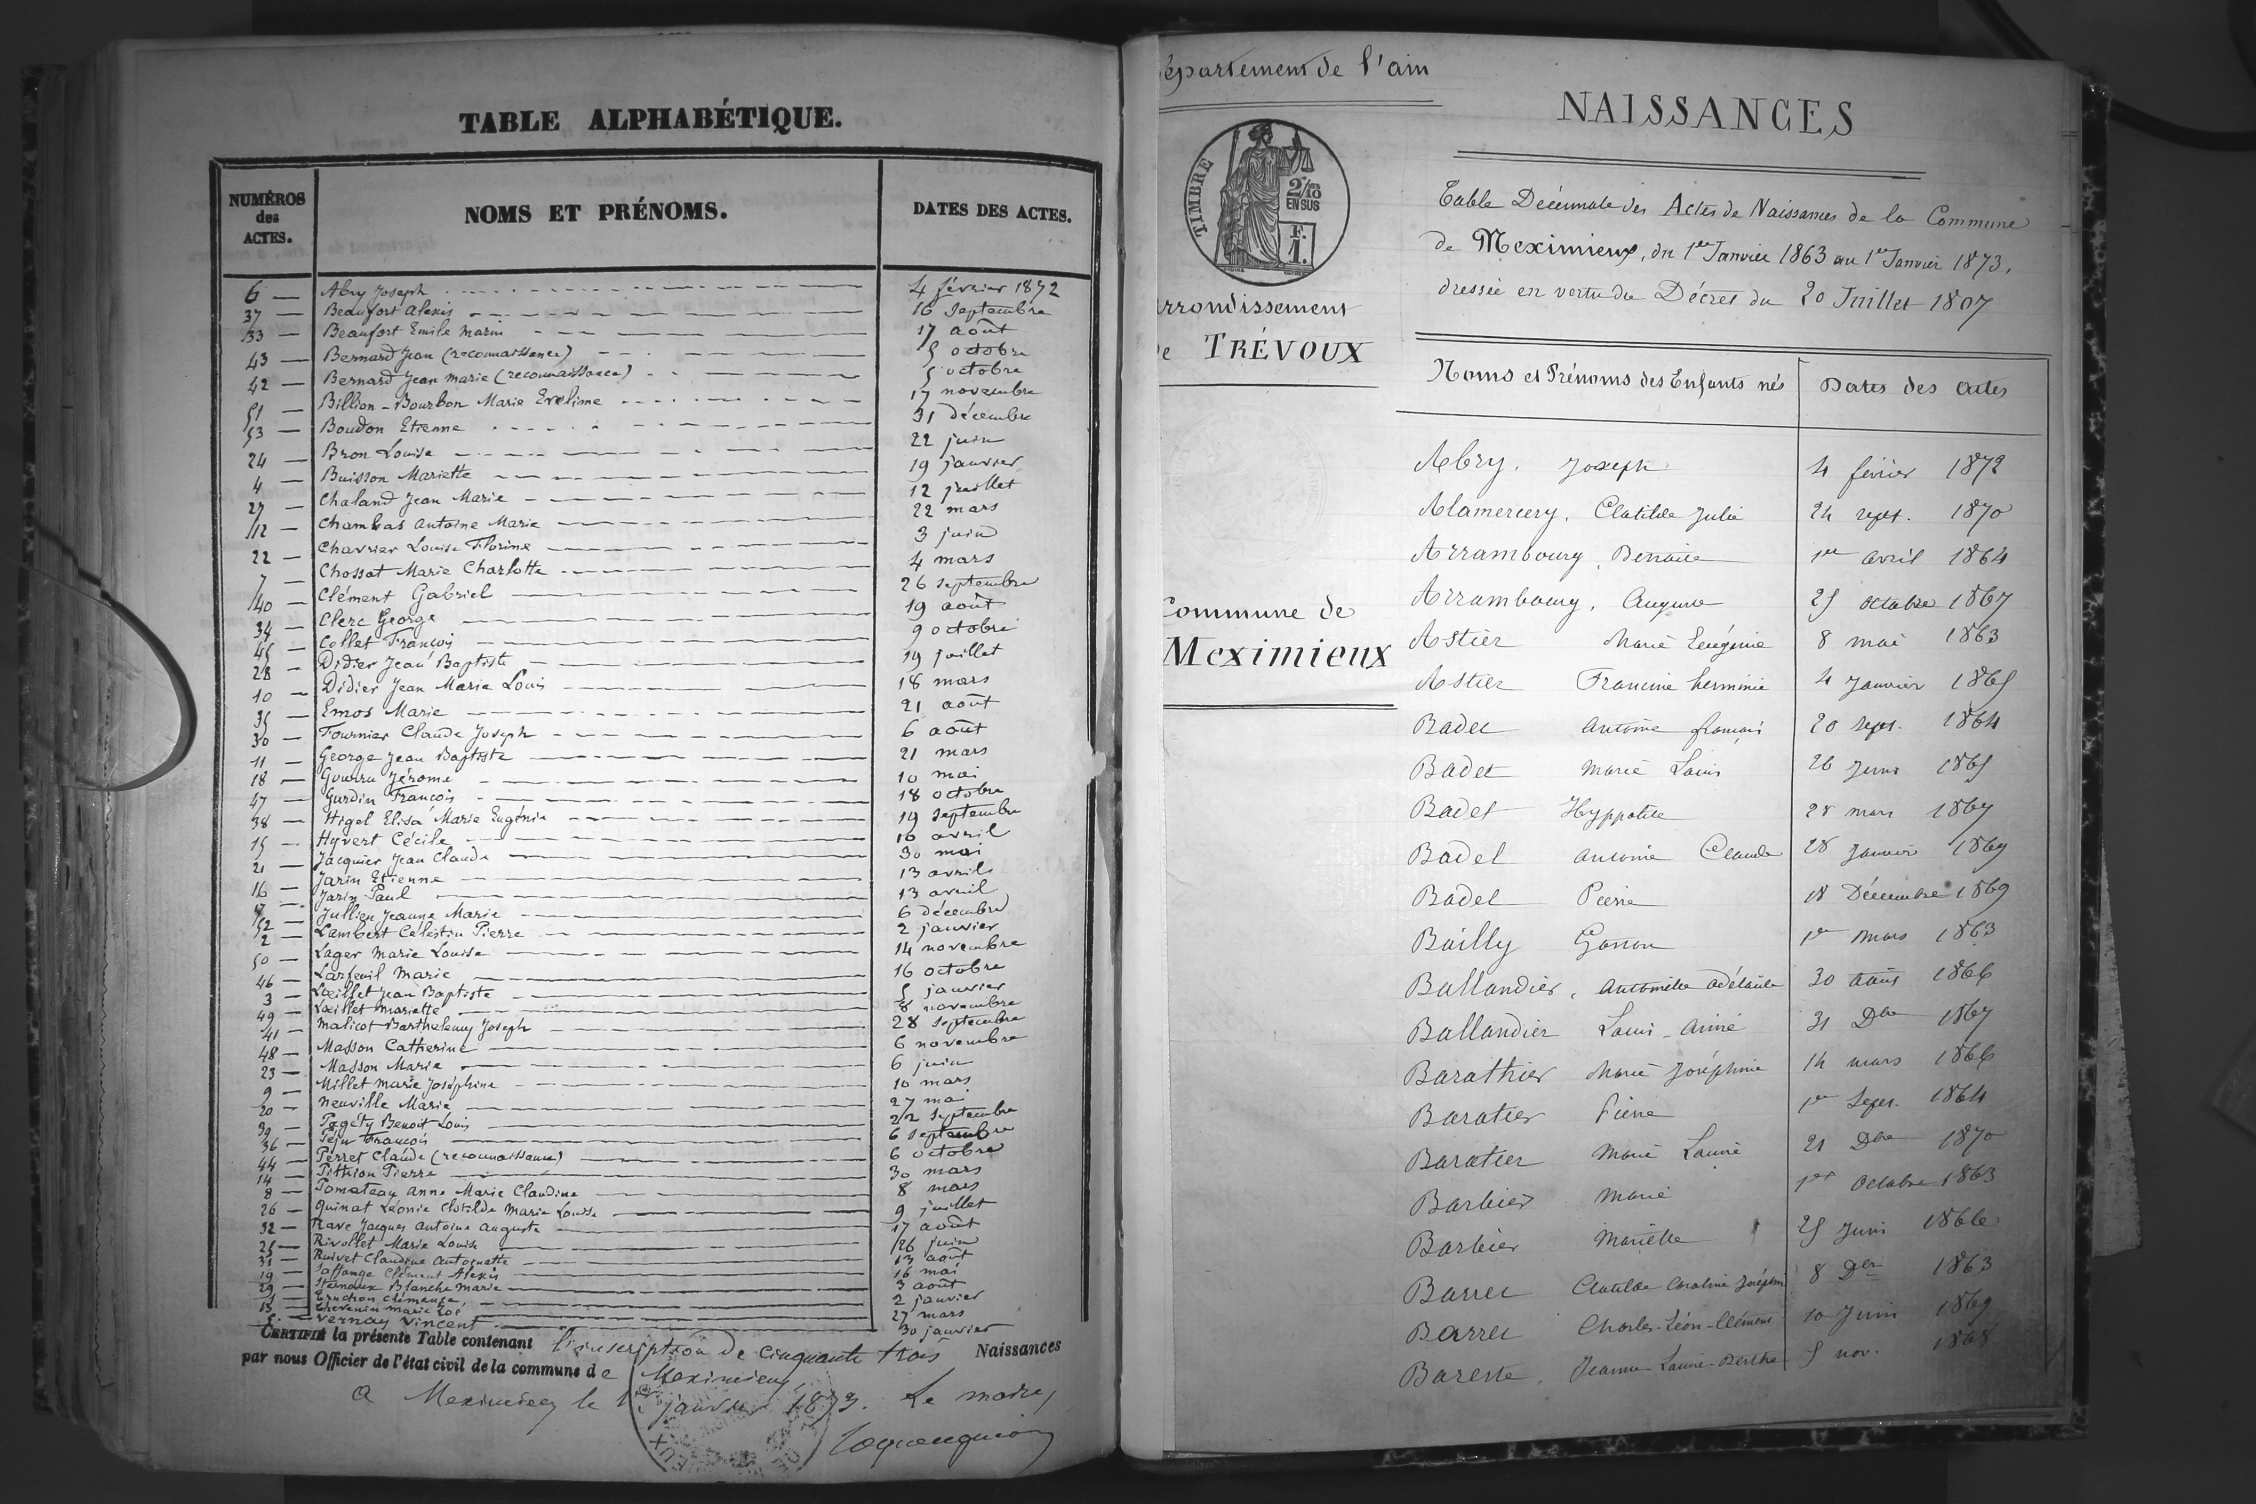 TABLE ALPHABÉTIQUE.
NUMÉROS des ACTES.
NOMS ET PRÉNOMS.
DATES DES ACTES.
6 — Abry Joseph 4 février 1872
37 — Beaufort Alexis 16 Septembre
33 — Beaufort Emile Marius 17 août
43 — Bernard Jean (reconnaissance) 5 octobre
42 — Bernard Jean Marie (reconnaissance) 5 octobre
51 — Billion-Bourbon Marie Eveline 17 novembre
53 — Boudon Etienne 31 décembre
24 — Bron Louise 22 juin
4 — Buisson Mariette 19 janvier
27 — Chaland Jean Marie 12 juillet
12 — Chambas Antoine Marie 22 mars
22 — Charrier Louise Florine 3 juin
7 — Chossat Marie Charlotte 4 mars
40 — Clément Gabriel 26 septembre
34 — Clerc George 19 août
45 — Collet François 9 octobre
28 — Didier Jean Baptiste 19 juillet
10 — Didier Jean Marie Louis 18 mars
35 — Emos Marie 21 août
30 — Fournier Claude Joseph 6 août
11 — George Jean Baptiste 21 mars
18 — Gourru Jérome 10 mai
47 — Gurdin François 18 octobre
38 — Higel Elisa Marie Eugénie 19 Septembre
15 — Hyvert Cécile 10 avril
21 — Jacquier Jean Claude 30 mai
16 — Jarin Etienne 13 avril
17 — Jarin Paul 13 avril
52 — Jullien Jeanne Marie 6 décembre
2 — Lambert Célestin Pierre 2 janvier
50 — Lager Marie Louise 14 novembre
46 — Larfeuil Marie 16 octobre
3 — Lœillet Jean Baptiste 5 janvier
49 — Lœillet Mariette 8 novembre
41 — Malicot Barthelemy Joseph 28 Septembre
48 — Masson Catherine 6 novembre
23 — Masson Marie 6 juin
9 — Millet Marie Joséphine 10 mars
20 — Neuville Marie 27 mai
39 — Pagéty Benoit Louis 22 Septembre
36 — Péju François 6 Septembre
44 — Perret Claude (reconnaissance) 6 octobre
14 — Pithion Pierre 30 mars
8 — Pomateau Anne Marie Claudine 8 mars
26 — Quinat Léonie Clotilde Marie Louise 9 juillet
32 — Rave Jacques Antoine Auguste 17 août
25 — Rivollet Marie Louise 26 juin
31 — Ruivet Claudine Antoinette 13 août
19 — Saffange Clément Alexis 16 mai
29 — Blanche Marie 3 août
1 — Truchon Clémence 2 janvier
13 — Thevenin Marie Zoé 27 mars
5 — Vernay Vincent 30 janvier
CERTIFIÉ la présente Table contenant l'inscription de cinquante trois Naissances
par nous Officier de l'état civil de la commune de Meximieux
A Meximieux le 1er janvier 1873. Le maire,
Département de l'ain
TIMBRE
2/10 EN SUS
F. 1.
Arrondissement
de TRÉVOUX
Commune de
Meximieux
NAISSANCES
Table Décennale des Actes de Naissances de la Commune
de Meximieux, du 1er Janvier 1863 au 1er Janvier 1873,
dressée en vertu du Décret du 20 Juillet 1807
Noms et Prénoms des Enfants nés
Dates des actes
Abry. Joseph 4 févier 1872
Alamercery, Clotilde Julie 24 sept. 1870
Arrambourg, Benoite 1er avril 1864
Arrambourg, Auguste 25 octobre 1867
Astier Marie Eugénie 8 mai 1863
Astier Francine herminie 4 Janvier 1865
Badel Antoine françois 20 sept. 1864
Badet Marie Louis 26 Juin 1865
Badet Hyppolite 28 mars 1867
Badel Antoine Claude 28 Janvier 1869
Badel Pierre 18 Décembre 1869
Bailly Gaston 1er Mars 1863
Ballandier, Antoinette Adélaïde 30 août 1866
Ballandier Louis-Aimé 31 Dbre 1867
Barathier Marie Joséphine 14 mars 1866
Baratier Pierre 1er Sept. 1864
Baratier Marie Laurie 21 Dbre 1870
Barbier Marie 1er Octobre 1863
Barbier Mariette 25 Juin 1866
Barret Clotilde Caroline Joséphine 8 Dbre 1863
Barret Charles-Léon-Clément 10 Juin 1869
Bareste, Jeanne-Laurie-Berthe 5 nov. 1868